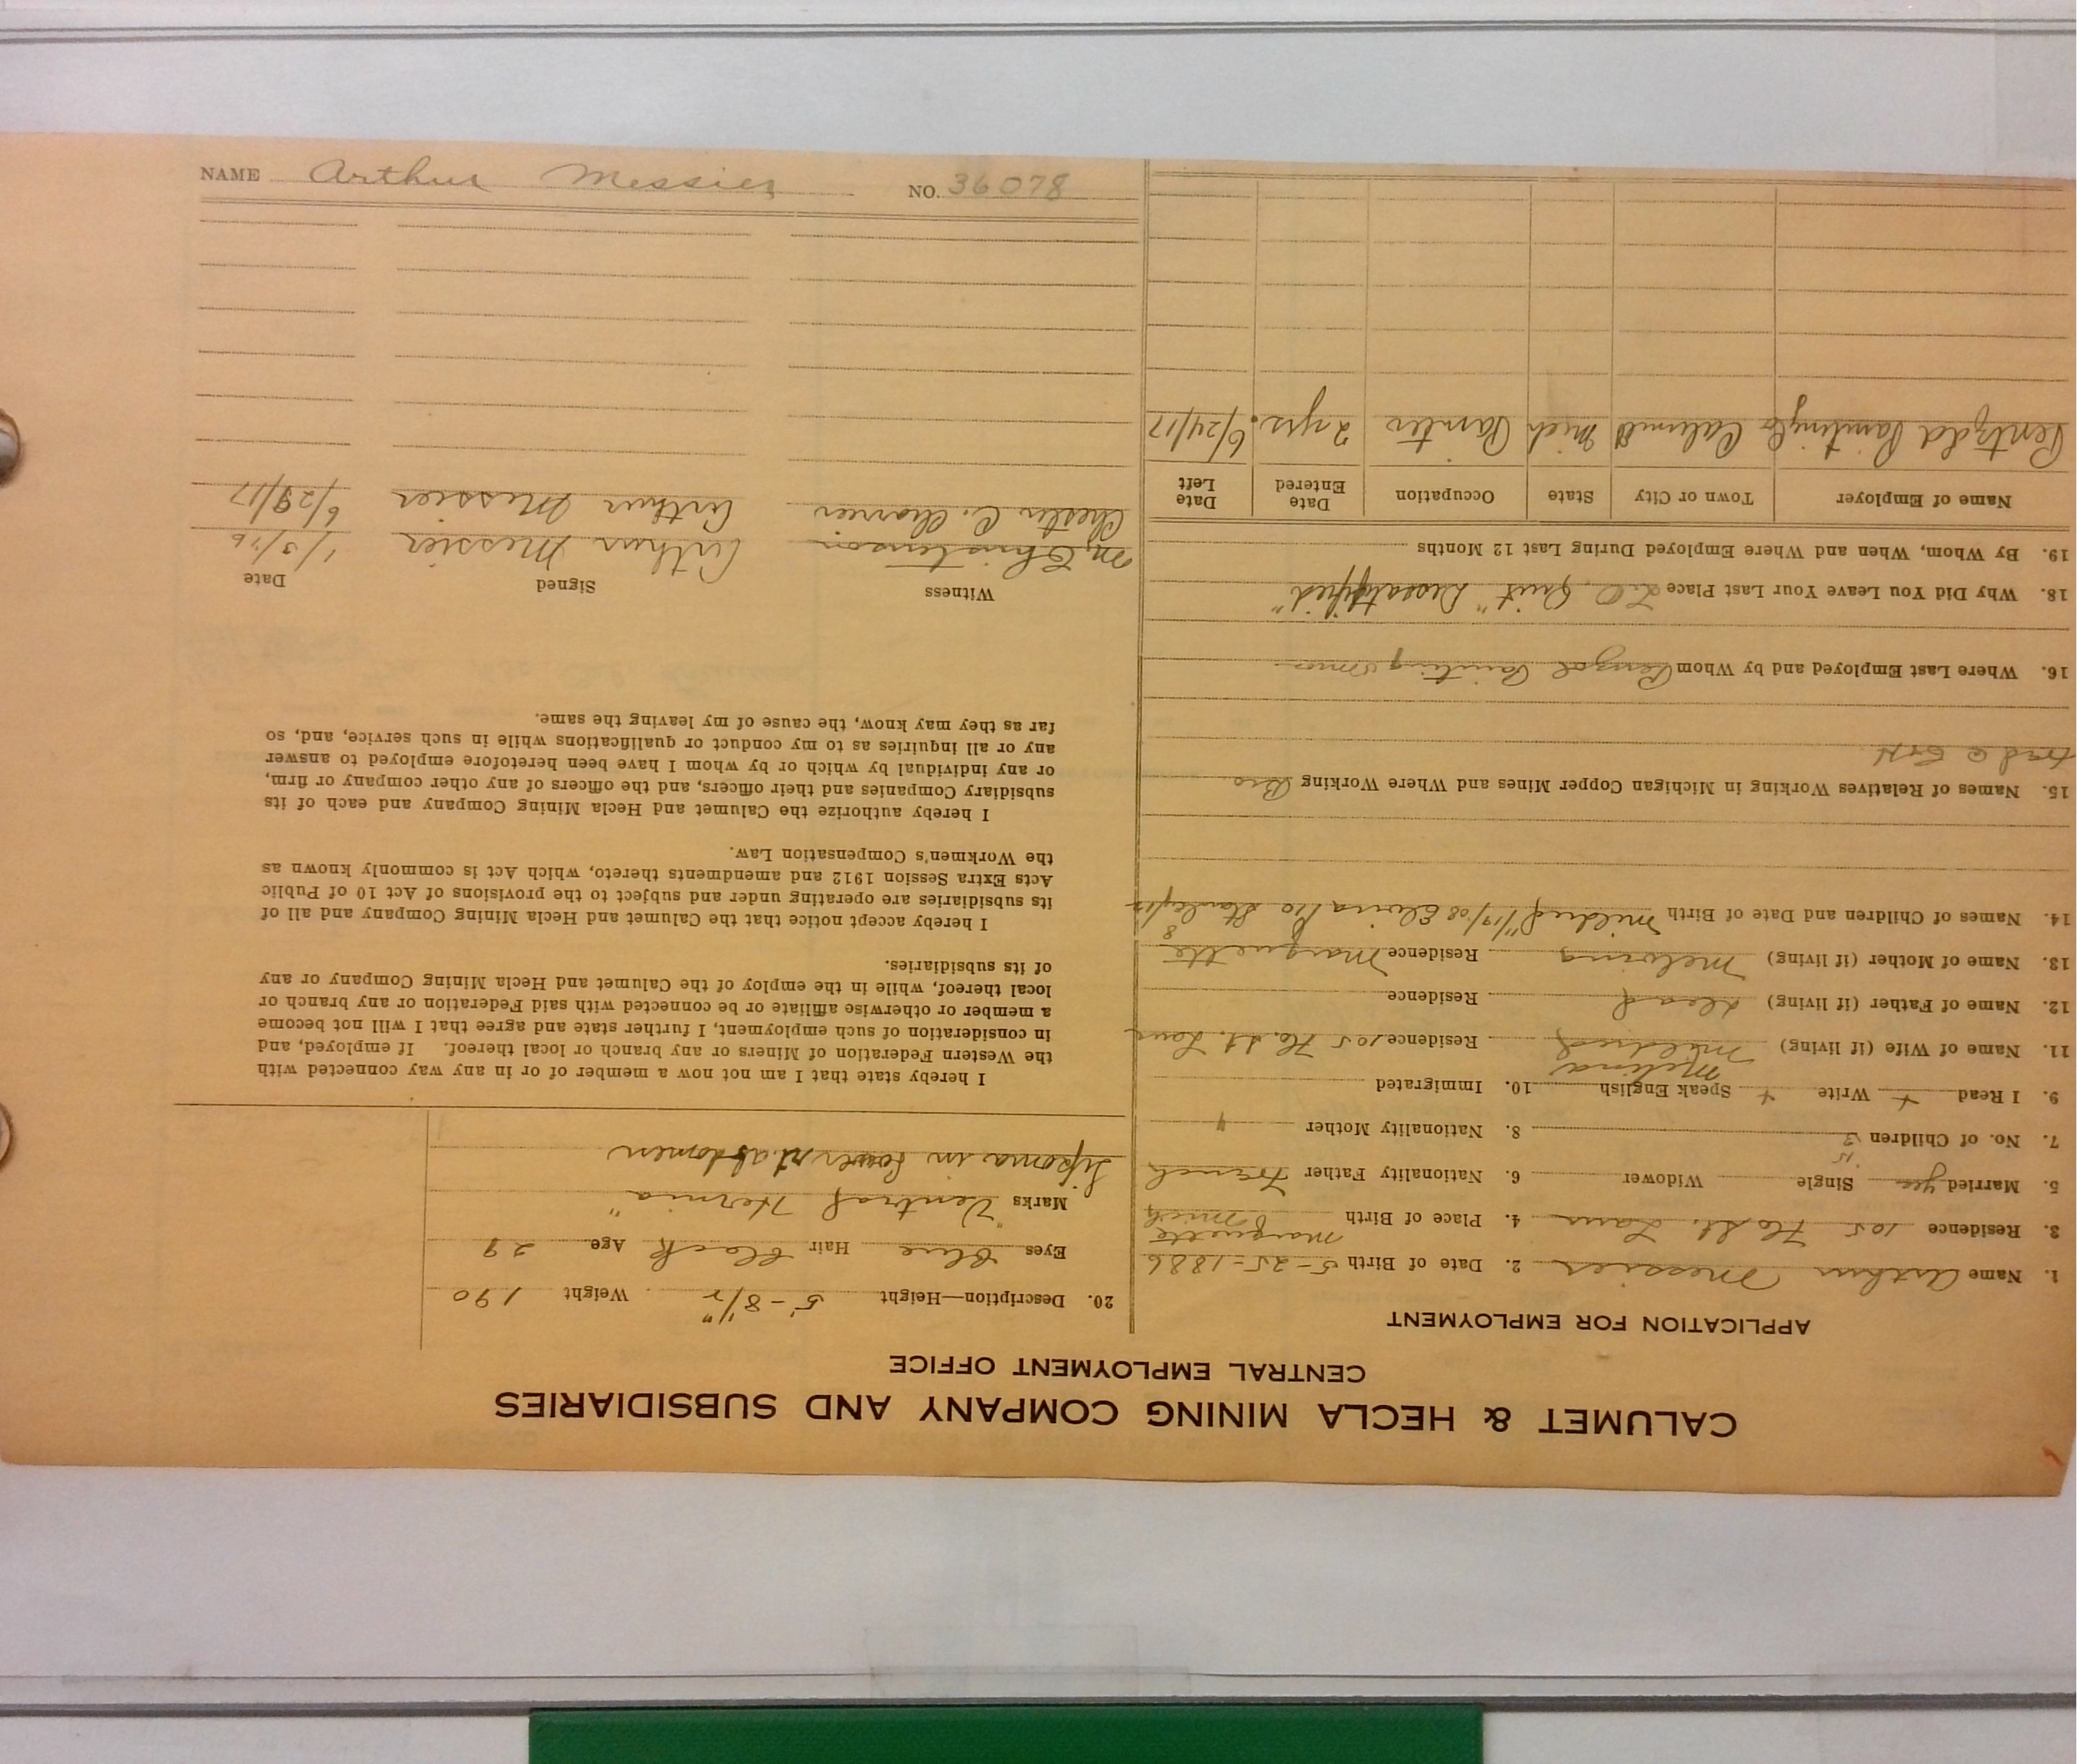 CALUMET & HECLA MINING COMPANY AND SUBSIDIARIES
CENTRAL EMPLOYMENT OFFICE
APPLICATION FOR EMPLOYMENT
1. Name Arthur Messier 2. Date of Birth 5-25-1886
3. Residence 105 Ho. St. Laur 4. Place of Birth Marquette Mich
5. Married yes Single Widower 6. Nationality Father French
7. No. of Children 3 8. Nationality Mother "
9. I Read + Write + Speak English 10. Immigrated
Melina
11. Name of Wife (if living) Mildred Residence 105 Ho. St. Laur
12. Name of Father (if living) dead Residence
13. Name of Mother (if living) Melvina Residence Marquette
14. Names of Children and Date of Birth Mildred 11/17/08 Elvira 1/10 Stanley
15. Names of Relatives Working in Michigan Copper Mines and Where Working Bro
Fred @
16. Where Last Employed and by Whom Penzal Painting 5 mos
18. Why Did You Leave Your Last Place Quit "Dissatisfied"
19. By Whom, When and Where Employed During Last 12 Months
Name of Employer Town or City State Occupation Date Entered Date Left
Pentzold Painting Co Calumet Mich Painter 2 yrs. 6/24/17
20. Description—Height 5-8 1/2" Weight 190
Eyes Blue Hair Black Age 29
Marks "Ventral Hernia"
Lipoma in lower rt. abdomen
I hereby state that I am not now a member of or in any way connected with
the Western Federation of Miners or any branch or local thereof. If employed, and
in consideration of such employment, I further state and agree that I will not become
a member or otherwise affiliate or be connected with said Federation or any branch or
local thereof, while in the employ of the Calumet and Hecla Mining Company or any
of its subsidiaries.
I hereby accept notice that the Calumet and Hecla Mining Company and all of
its subsidiaries are operating under and subject to the provisions of Act 10 of Public
Acts Extra Session 1912 and amendments thereto, which Act is commonly known as
the Workmen's Compensation Law.
I hereby authorize the Calumet and Hecla Mining Company and each of its
subsidiary Companies and their officers, and the officers of any other company or firm,
or any individual by which or by whom I have been heretofore employed to answer
any or all inquiries as to my conduct or qualifications while in such service, and, so
far as they may know, the cause of my leaving the same.
Witness Signed Date
M. Christenson Arthur Messier 1/5/16
Chester C. Charrier Arthur Messier 6/29/17
NAME Arthur Messier NO. 36078